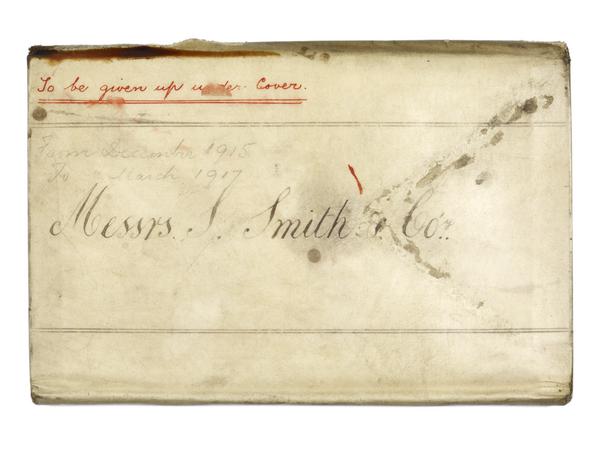 To be given up under Cover.
From December 1915
To March 1917
Messrs. S. Smith & Co'y.